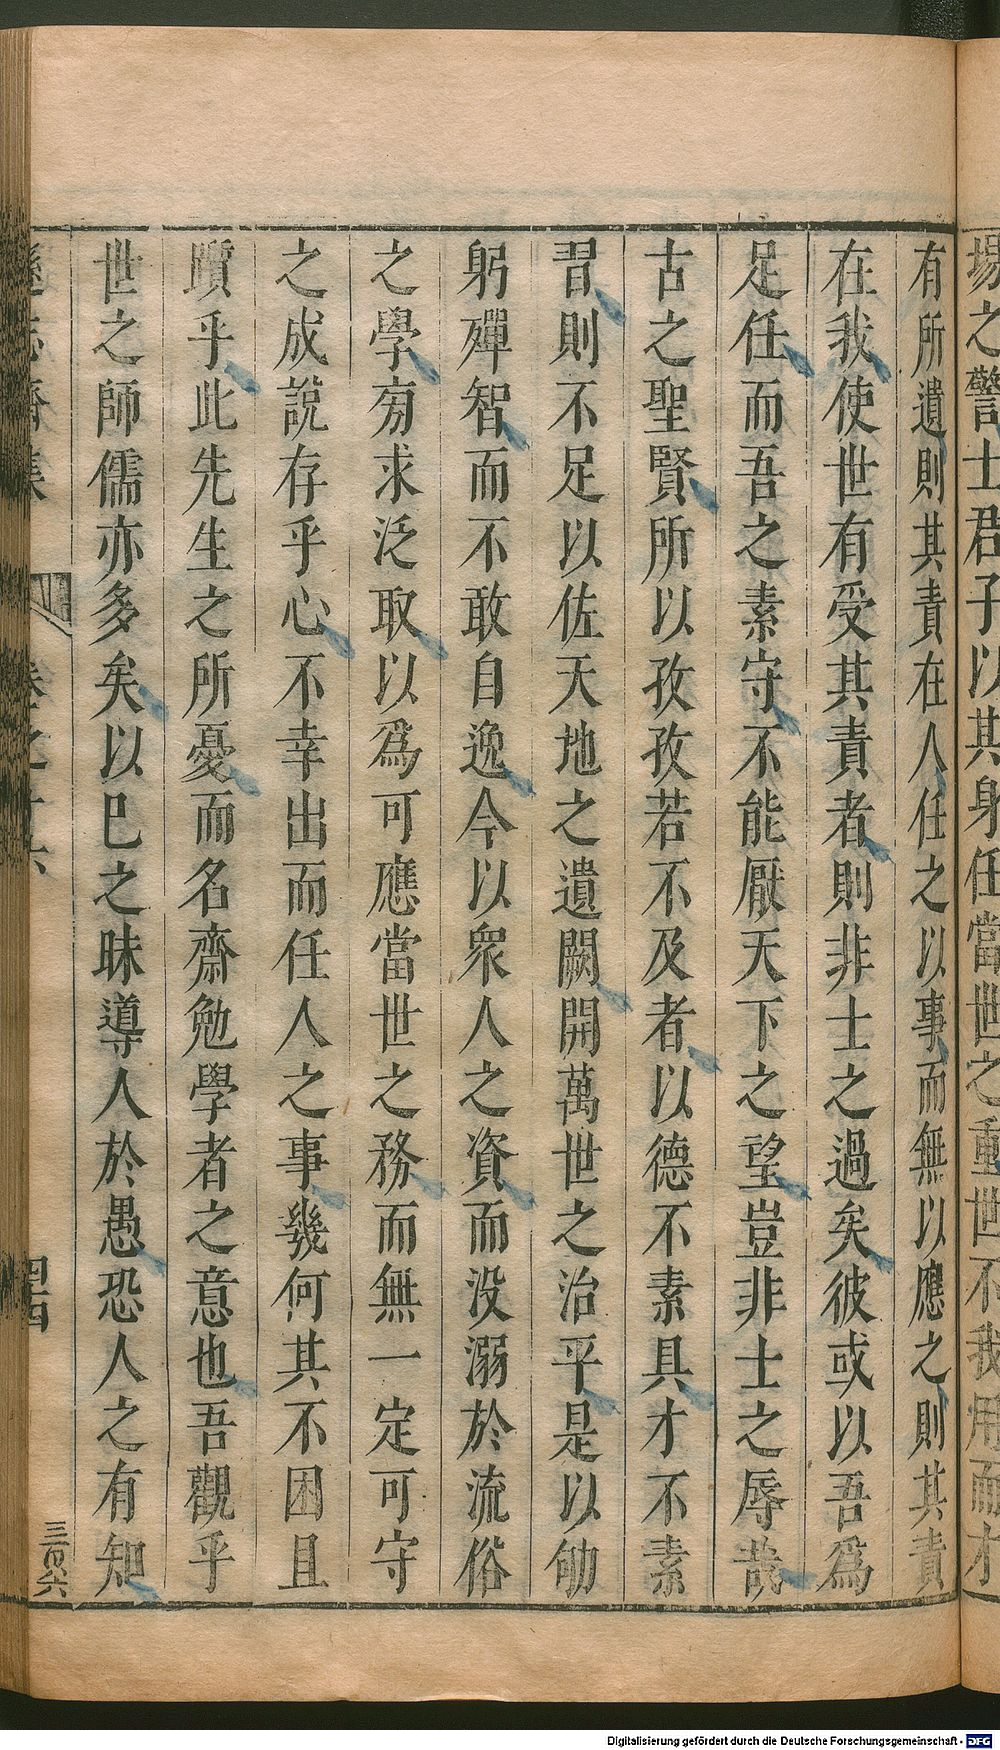 場之警士君子以其身任當世之重世不我用而才
有所遺則其責在人任之以事而無以應之則其責
在我使世有受其責者則非士之過矣彼或以吾爲
足任而吾之素守不能厭天下之望豈非士之辱哉
古之聖賢所以孜孜若不及者以德不素具才不素
習則不足以佐天地之遺闕開萬世之治平是以劬
躬殫智而不敢自逸今以衆人之資而没溺於流俗
之學旁求泛取以爲可應當世之務而無一定可守
之成説存乎心不幸出而任人之事幾何其不困且
躓乎此先生之所憂而名齋勉學者之意也吾觀乎
世之師儒亦多矣以巳之昧導人於愚恐人之有知
遜志齋集 卷之十六 四四
三百六
Digitalisierung gefördert durch die Deutsche Forschungsgemeinschaft - DFG